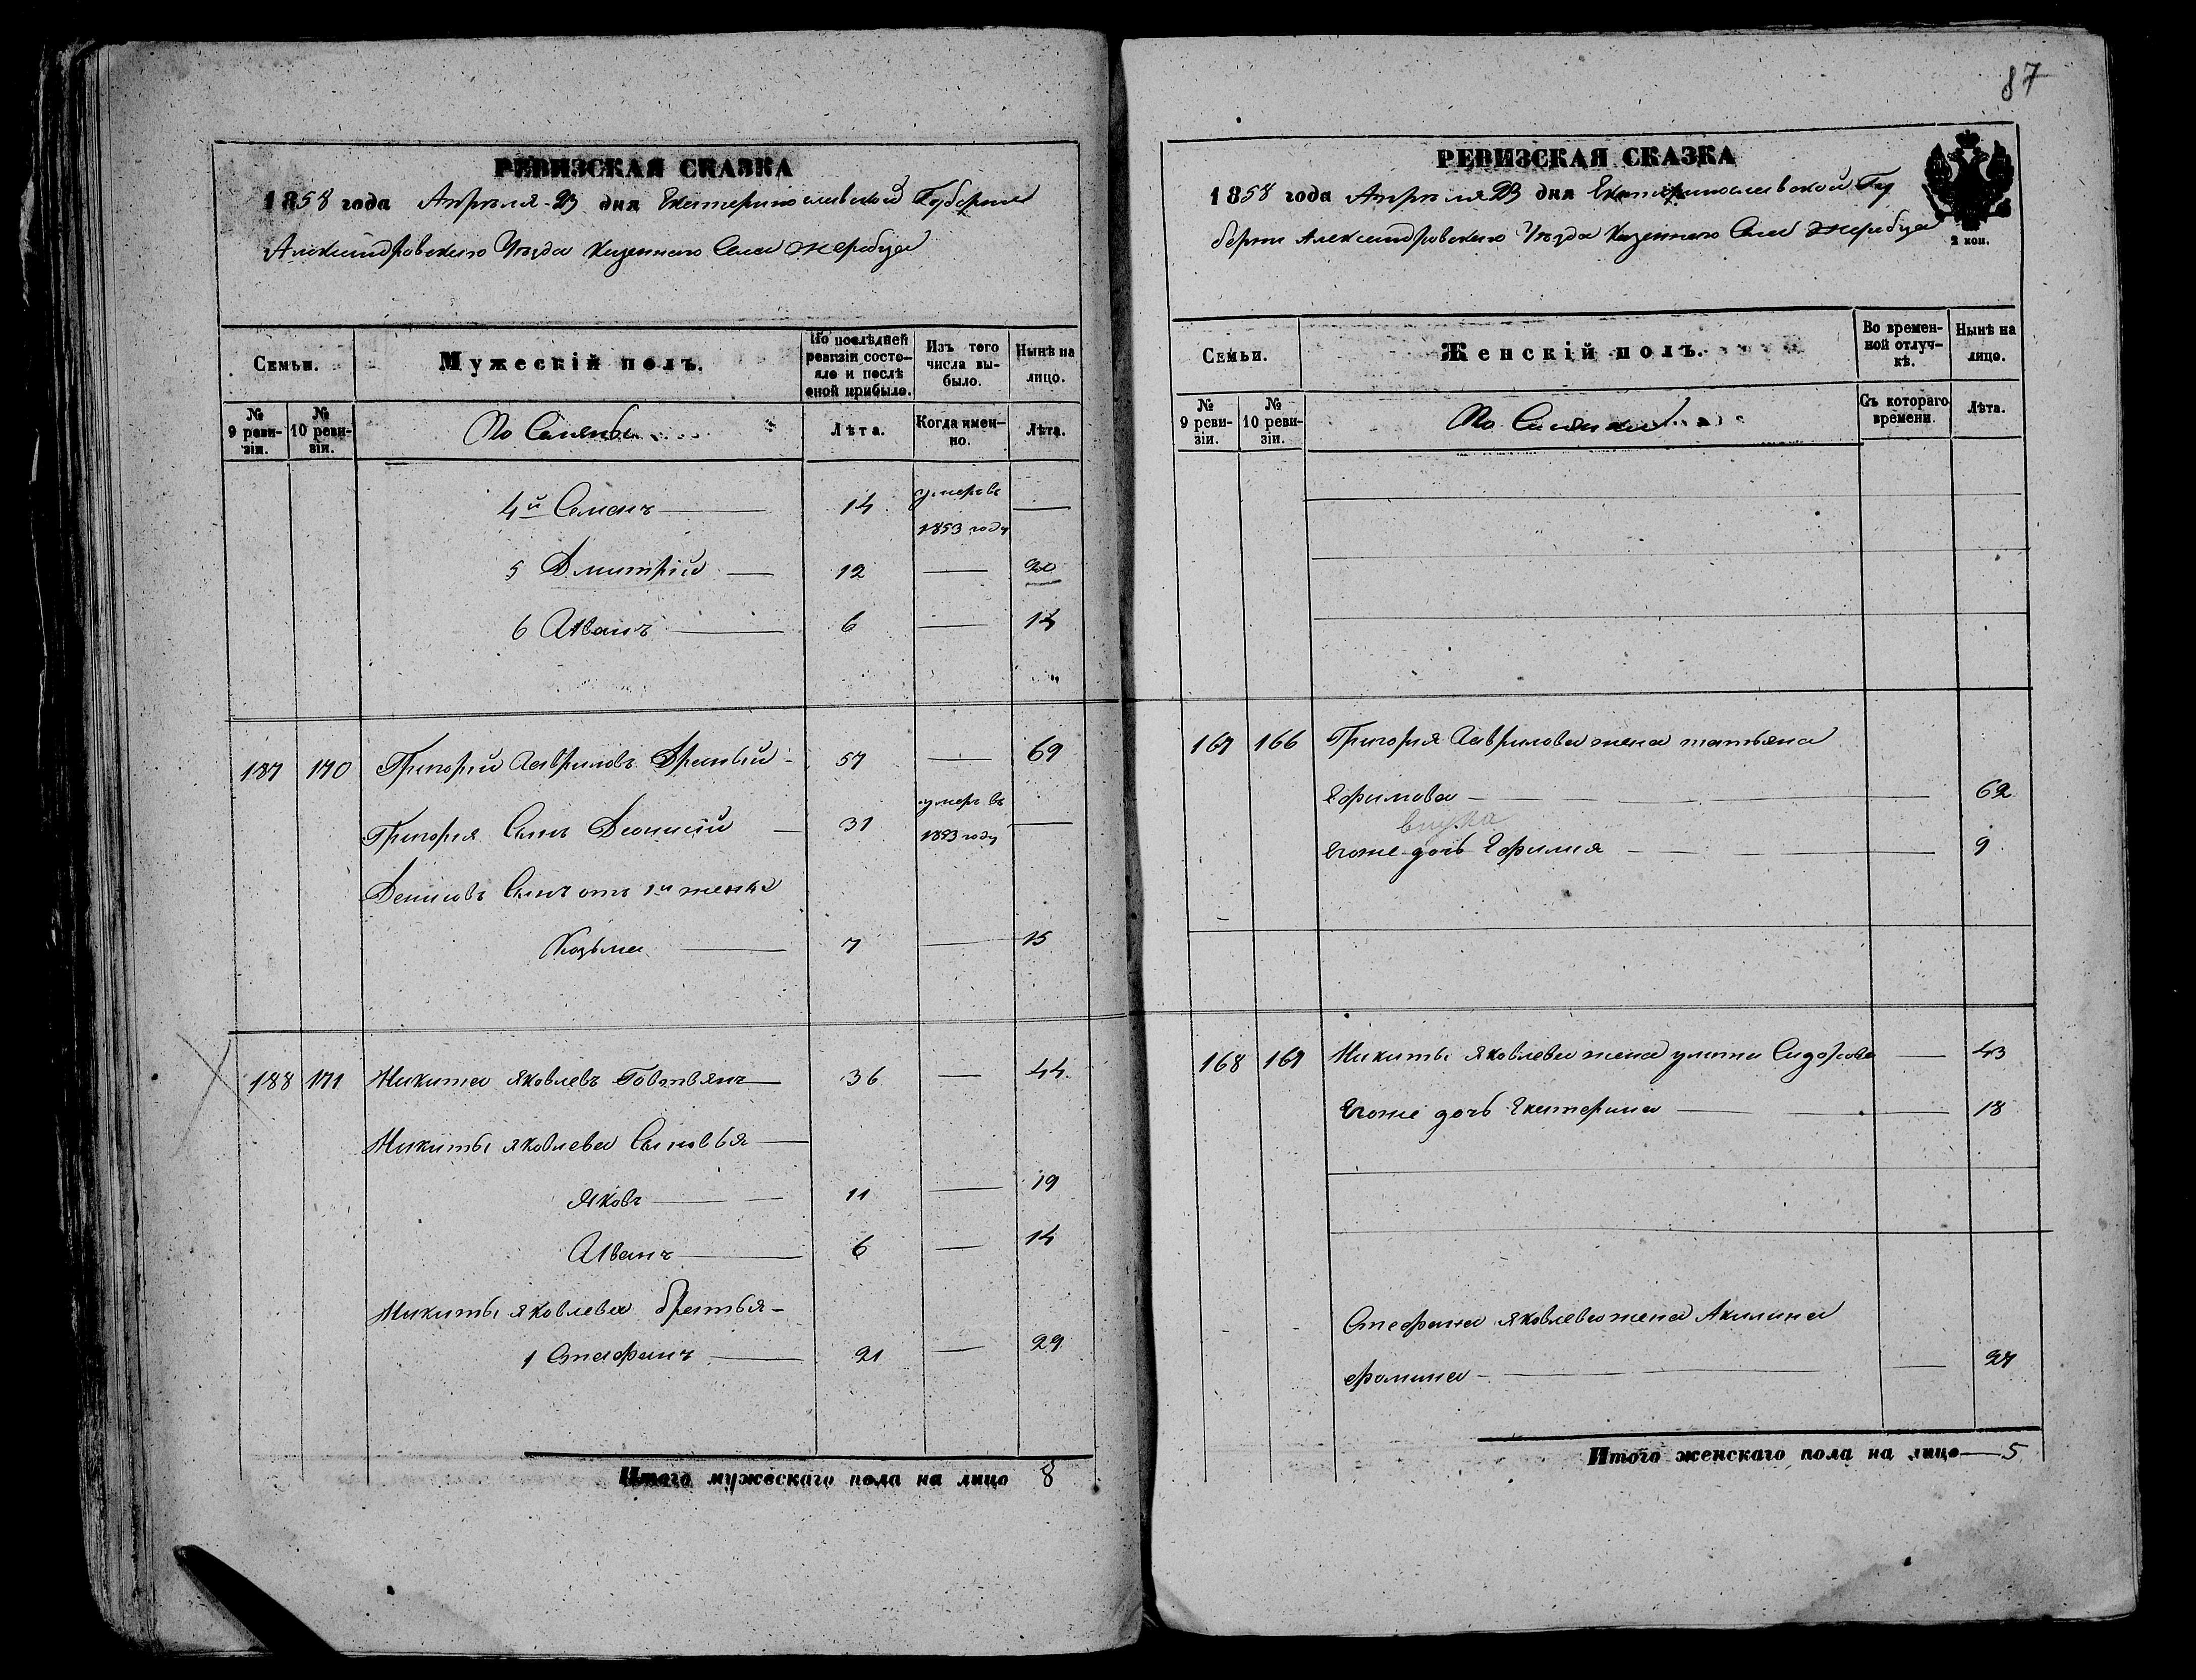 РЕВИЗСКАЯ СКАЗКА
1858 года Апрѣля 23 дня Екатеринославской Губернии
Александровскаго Уѣзда казеннаго Села Жеребца
Семьи.
Мужескій полъ.
По послѣдней ревизіи состо-
яло и послѣ
оной прибыло.
Изъ того
числа вы-
было.
Нынѣ на
лицо.
№ 9 реви-
зіи.
№ 10 реви-
зіи.
Лѣта.
Когда имен-
но.
Лѣта.
4й Семенъ 14 умеръ въ
1853 году
5 Дмитрій 12 — 20
6 Иванъ 6 — 14
187 170 Григорій Гавриловъ 57 — 69
Григорія Сынъ Деонисій 31 умеръ въ
1853 году
Денисовъ Сынъ отъ 1й жены
Козьма 7 — 15
188 171 Никита Яковлевъ Говтвянъ 36 — 44
Никиты Яковлева Сыновья
Яковъ 11 — 19
Иванъ 6 — 14
Никиты Яковлева братья
1 Стефанъ 21 — 29
Итого мужескаго пола на лицо 8
87
РЕВИЗСКАЯ СКАЗКА
1858 года Апрѣля 23 дня Екатеринославской Гу
берни Александровскаго Уѣзда Казеннаго Села Жеребца
2 коп.
Семьи.
Женскій полъ.
Во времен-
ной отлуч-
кѣ.
Нынѣ на
лицо.
№ 9 реви-
зіи.
№ 10 реви-
зіи.
Съ котораго
времени.
Лѣта.
167 166 Григорія Гаврилова жена татьяна
Ефимова 62
внука
Егоже дочь Ефимия 9
168 167 Никиты Яковлева жена улита Сидорова — 43
Егоже дочь Екатерина 18
Стефана Яковлева жена Акилина
фомина — 27
Итого женскаго пола на лицо — 5